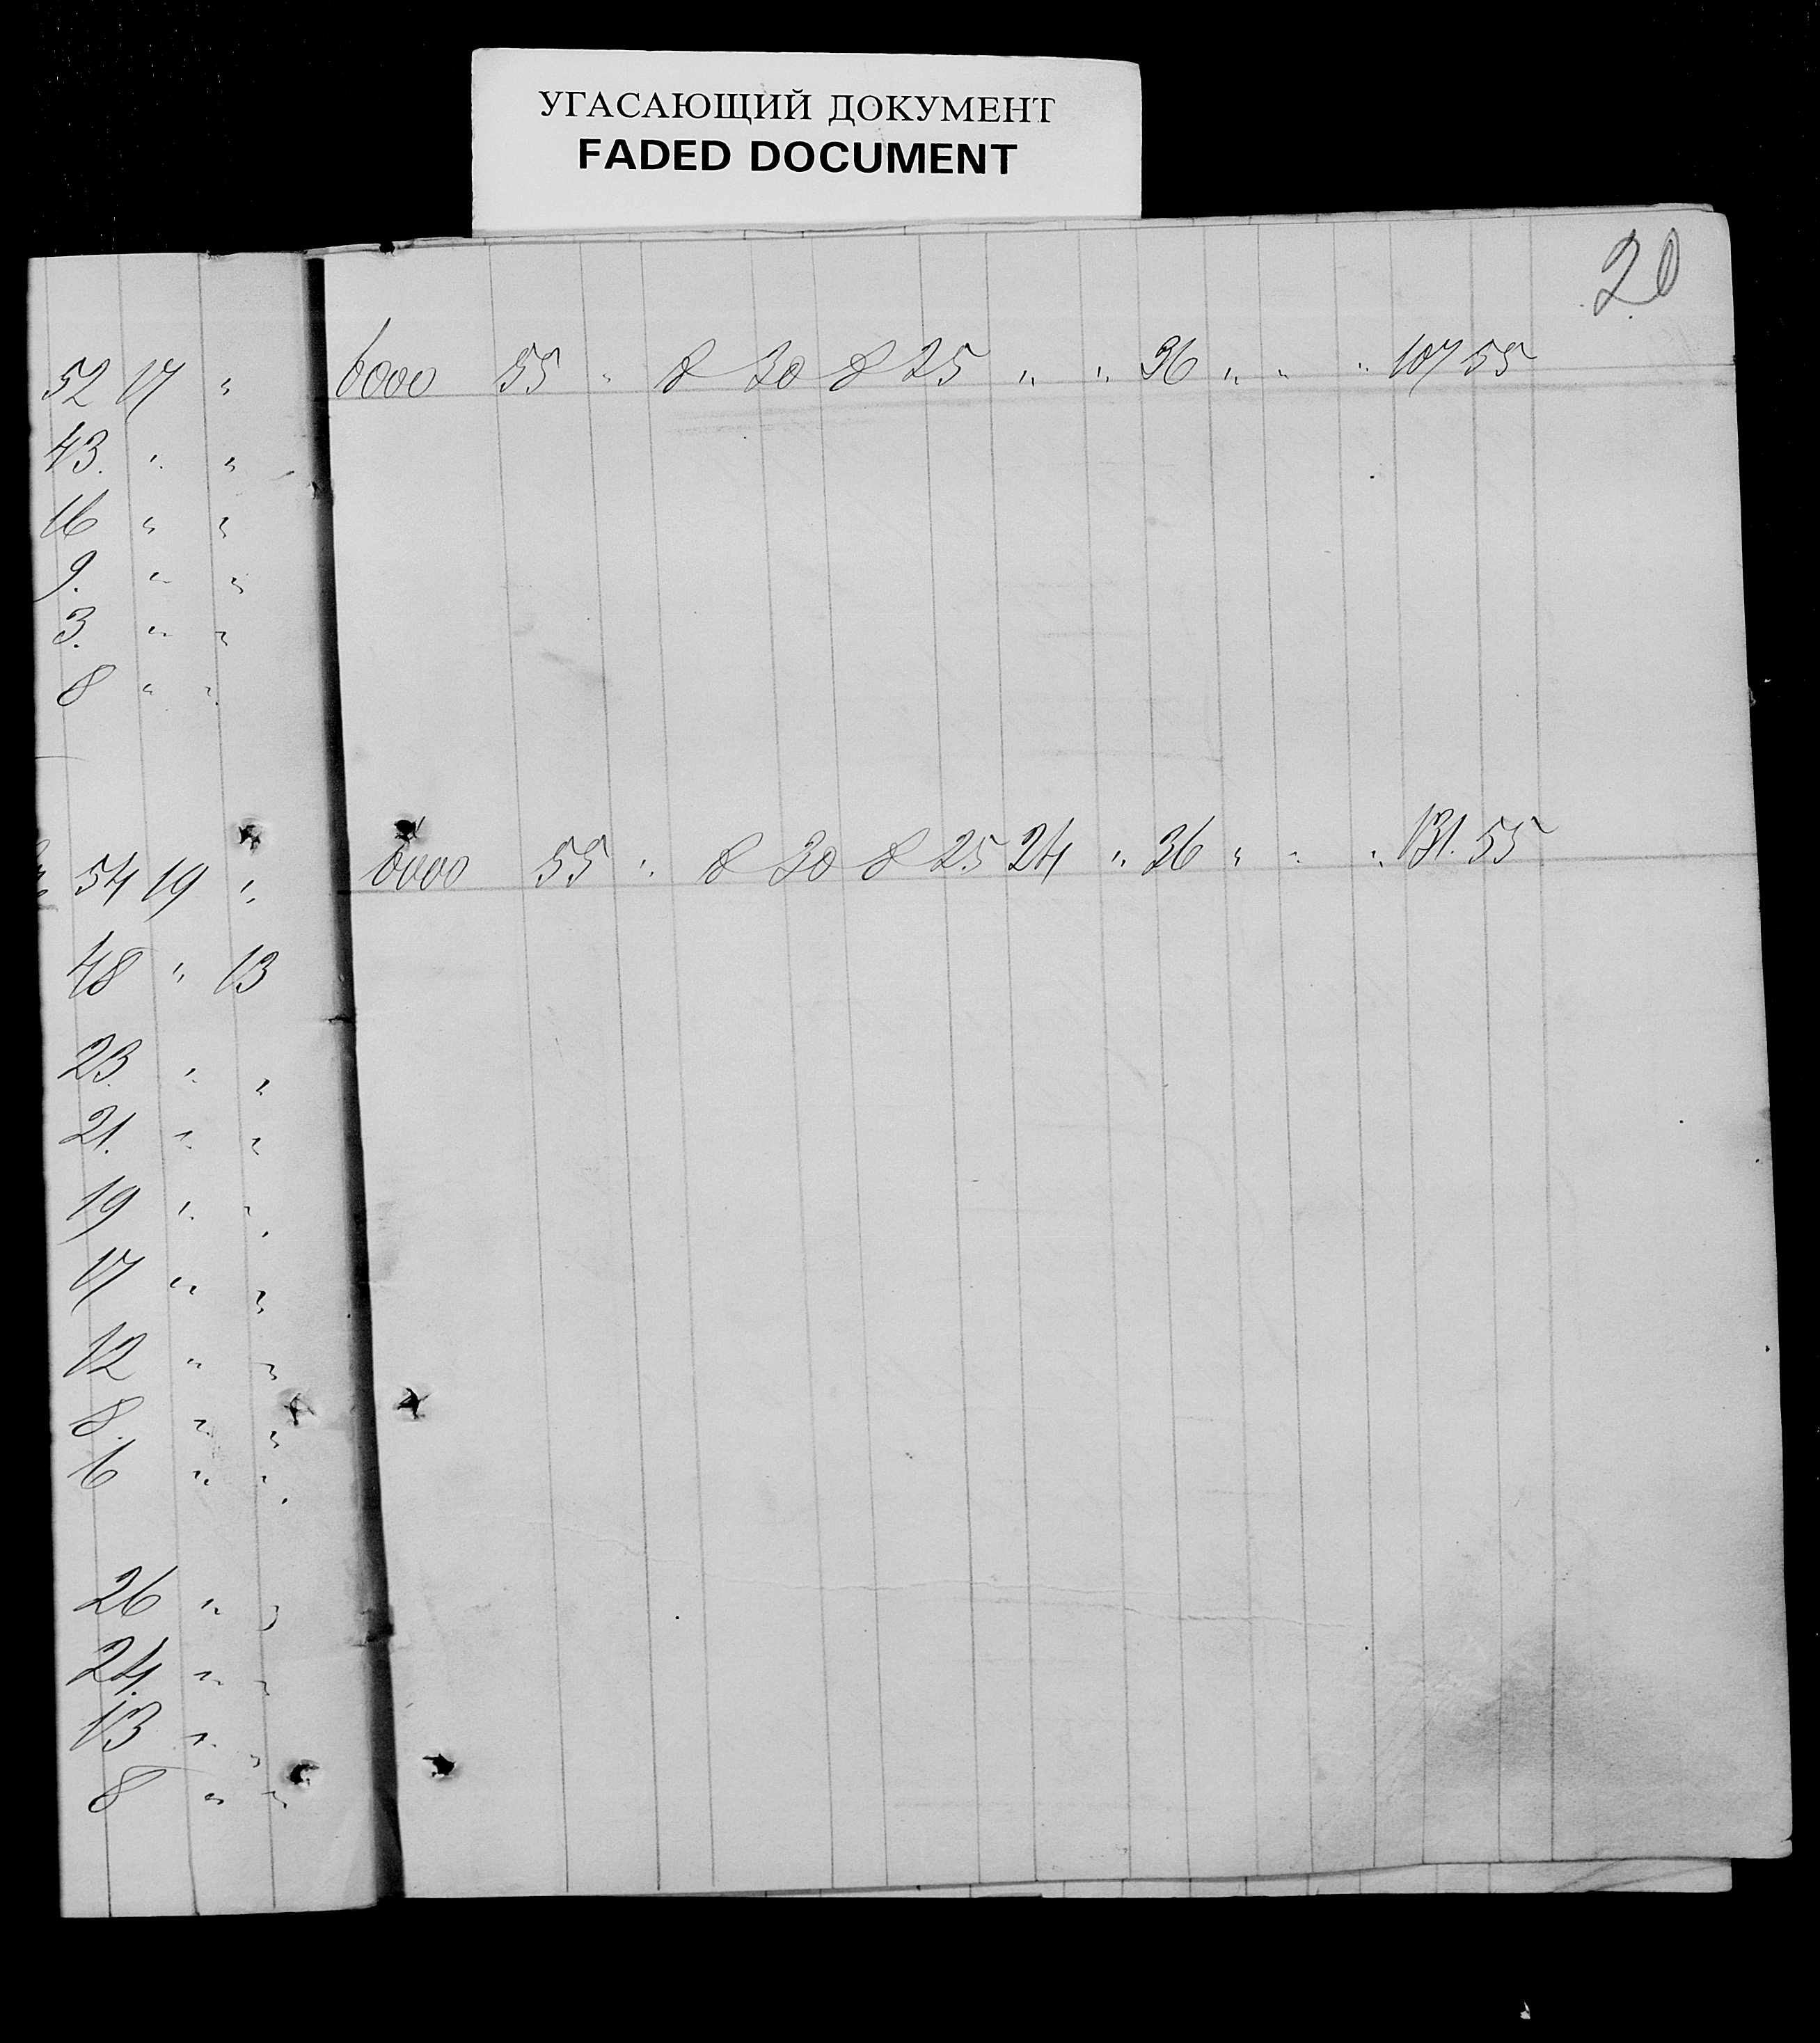 УГАСАЮЩИЙ ДОКУМЕНТ
FADED DOCUMENT
20
52 17 "
6000 55 " 8 30 8 25 " " 36 " " " 107 55
43. " "
16 " "
9. " "
3. " "
8 " "
54 19 "
6000 55 " 8 30 8 25 24 " 36 " " " 131. 55
48 " 13
23. " "
21. " "
19 " "
17 " "
12 " "
8. " "
6 " "
26 " "
24. " "
13 " "
8 " "